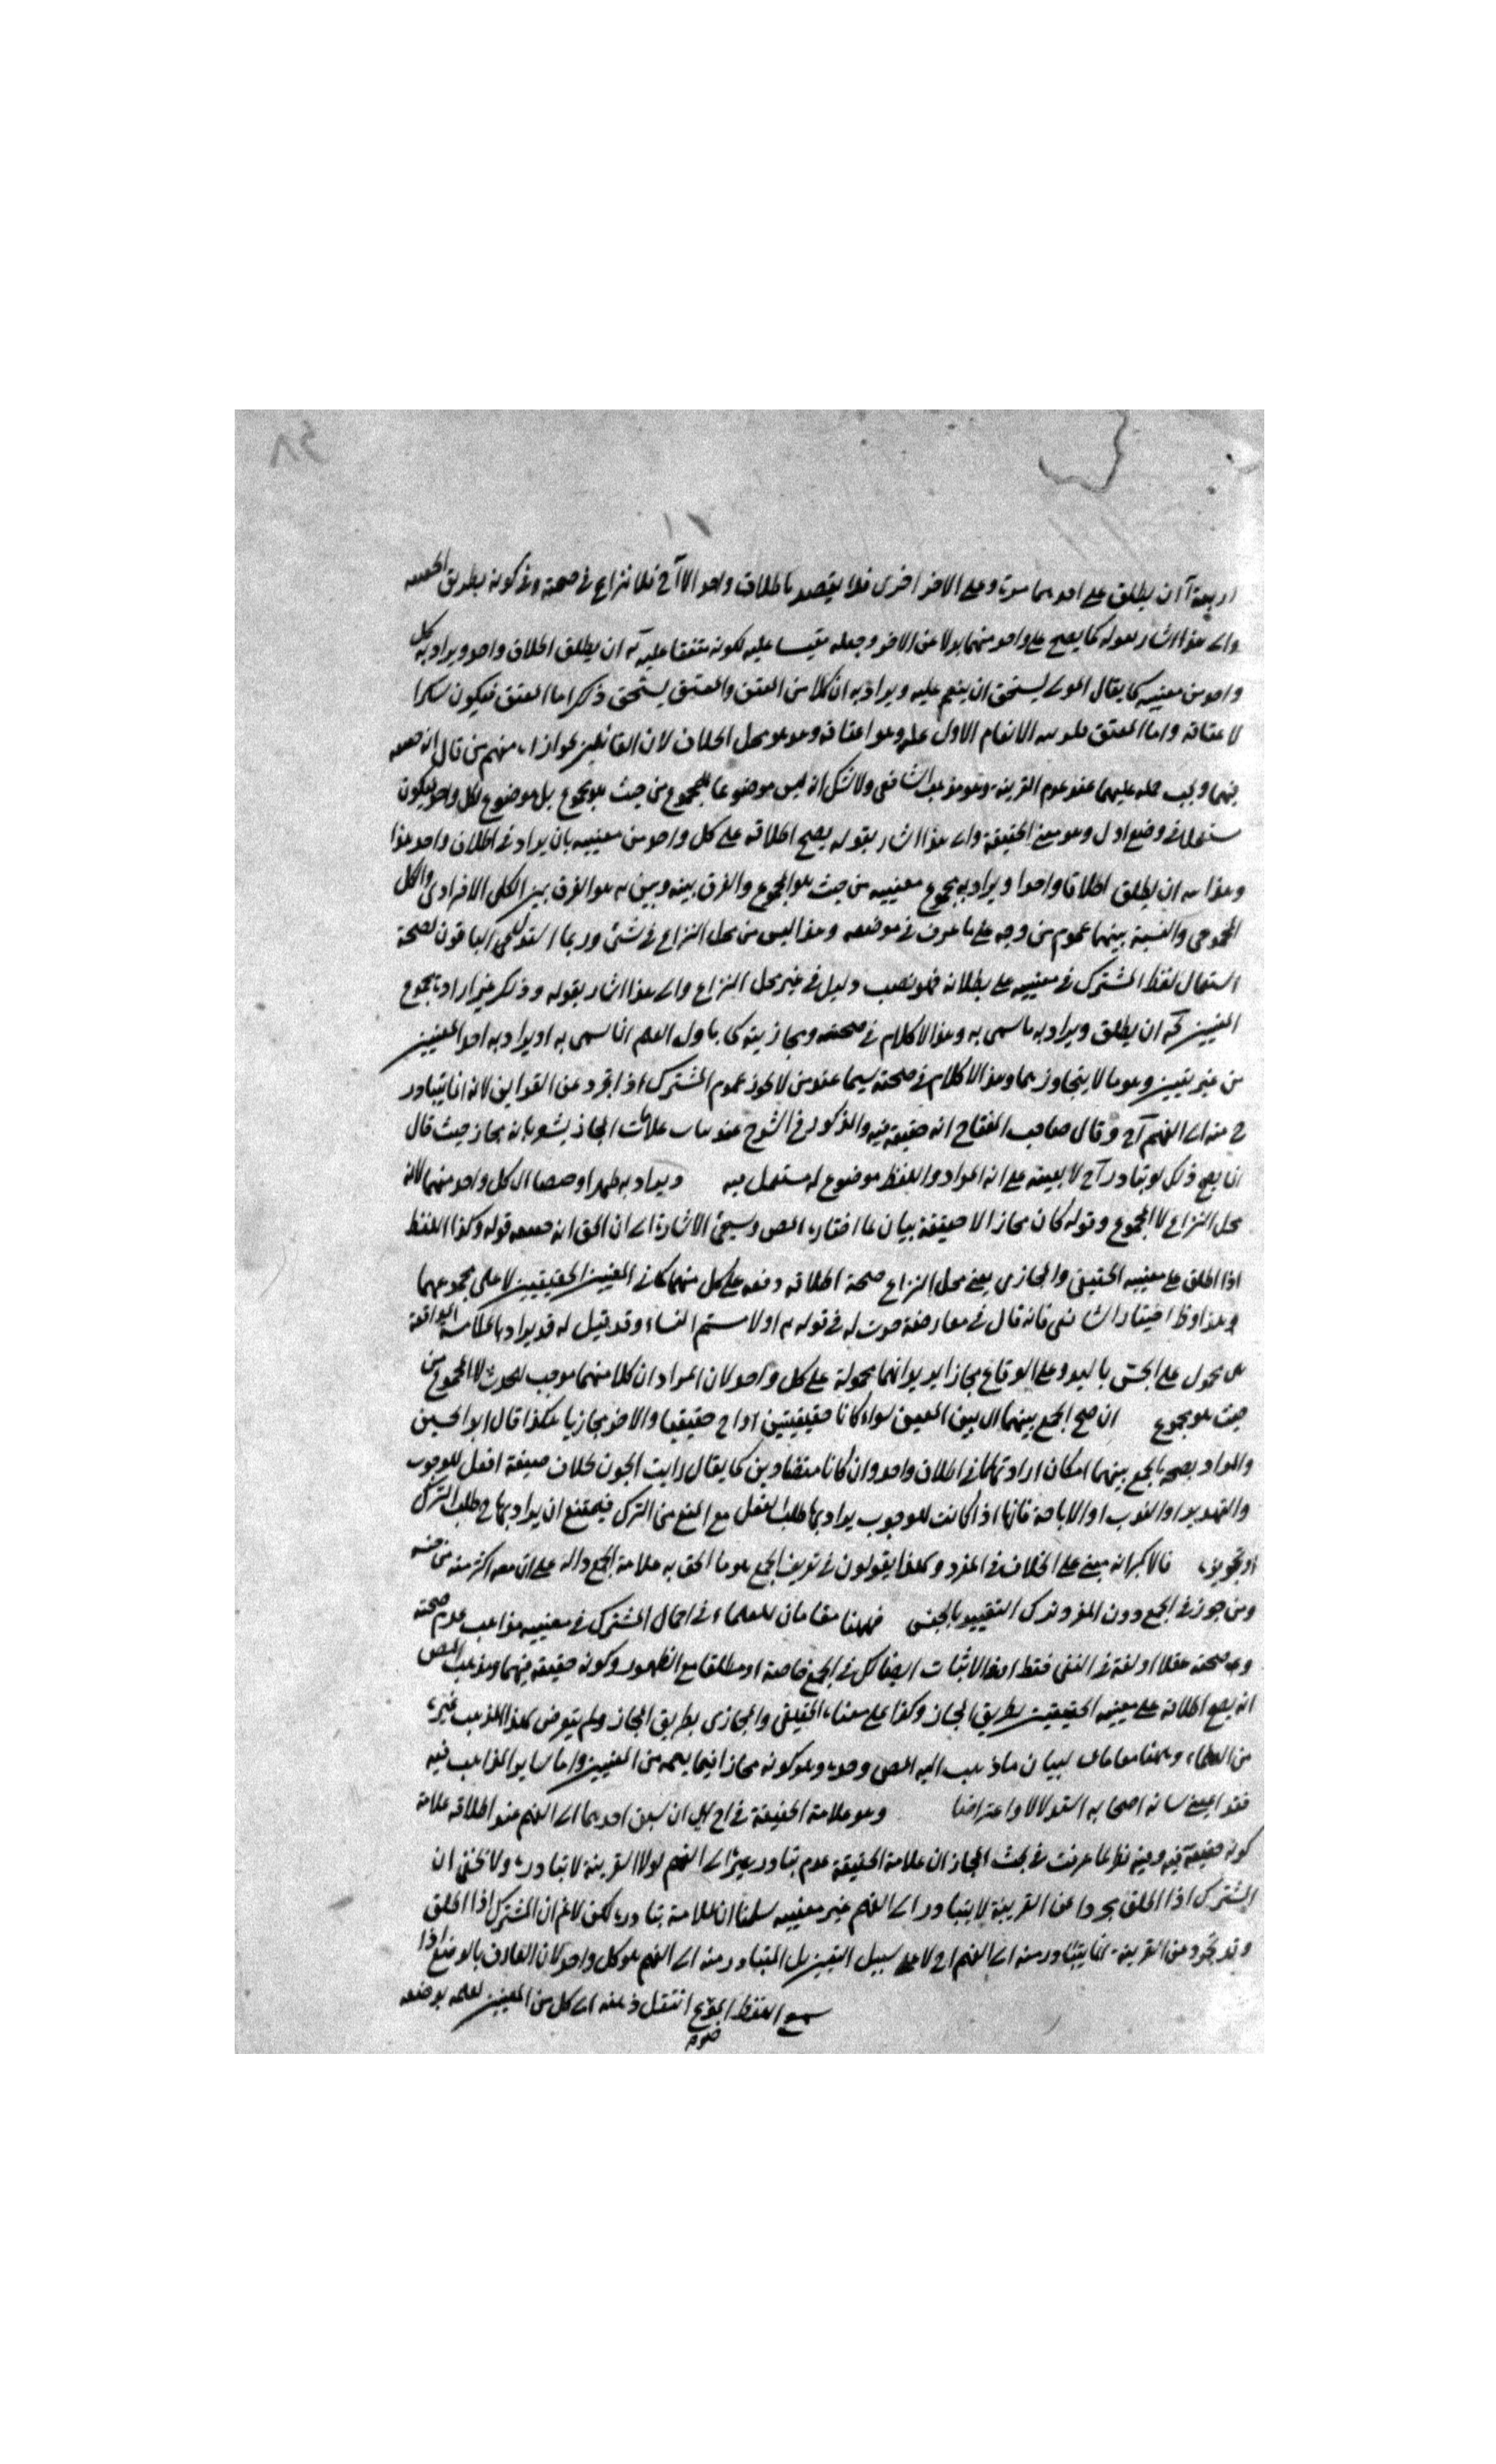 اربعة آ ان يطلق على احدهما مرة وعلى الاخر اخرى فلا يقصد باطلاق واحد الا آ خ فلا نزاع في صحته وفي كونه بطريق الحقيقة
والى هذا اشار بقوله كما يصح على واحد منهما بدلا عن الاخر وجعله مقيسا عليه لكونه متفقا عليه ب ان يطلق اطلاق واحد ويراد به كل
واحد من معنييه كما يقال المولى يستحق ان ينعم عليه ويراد به ان كلا من المعتق والمعتق يستحق ذلك اما المعتق فيكون شكرا
لاعتاقه واما المعتق الانعام الاول عليه وهو اعتاقه وهو محل الخلاف لان القائلين بجوازه منهم من قال انه حقيقة
فيهما ويجب حمله عليهما عند عدم القرينة وهو مذهب الشافعى ولا شك انه ليس موضوعا للمجموع من حيث هو مجموع بل موضوع لكل واحد فيكون
مستعملا في وضع اول وهو معنى الحقيقة والى هذا اشار بقوله يصح اطلاقه على كل واحد من معنييه بان يراد في اطلاق واحد هذا
وهذا ج ان يطلق اطلاقا واحدا ويراد به مجموع معنييه من حيث هو المجموع والفرق بينه وبين ب هو الفرق بين الكلى الافرادى والكل
المجموعى والنسبة بينهما عموم من وجه على ما عرف في موضعه وهذا ليس من محل النزاع في شئ وربما استدل الباقون لصحة
استعمال لفظ المشترك في معنييه على بطلانه فهو نصب دليل في غير محل النزاع والى هذا اشار بقوله وذلك غير ارادة مجموع
المعنيين د ان يطلق ويراد به ما سمى به وهذا لا كلام في صحته ومجازيته كما يأول العلم انا سمى به او يراد به احد المعنيين
من غير تعيين وهو ما لا يتجاوزهما وهذا لا كلام في صحته سيما عند من لا يجوز عموم المشترك اذا تجرد عن القراين لانه انما يتبادر
ح منه الى الفهم آ خ وقال صاحب المفتاح انه حقيقة فيه والمذكور في الشرح عند بيان علامات المجاز يشعر بانه مجاز حيث قال
انما يصح ذلك لو تبادر آ خ لا بعينه على انه المراد واللفظ موضوع له مستعمل فيه ويراد به طهرا وحيضا اى كل واحد منهما لانه
محل النزاع لا المجموع وقوله كان مجازا لا حقيقة بيان لما اختاره المص وسيجئ الاشارة الى ان الحق انه حقيقة قوله وكذا اللفظ
اذا اطلق على معنييه الحقيقى والمجازى يعنى محل النزاع صحة اطلاقه دفعة على كل منهما كما في المعنيين الحقيقيين لا على مجموعهما
وهذا وظ اختيار الشافعى فانه قال في معارضة جرت له في قوله تع اولامستم النساء وقد قيل له قد يراد بالملامسة المواقعة
هى محمول على الجس باليد وعلى الوقاع مجازا يريد انها محمولة على كل واحد لان المراد ان كلا منهما موجب للحدث لا المجموع من
حيث هو مجموع ان صح الجمع بينهما اى بين المعنيين سواء كانا حقيقيتين او اح حقيقيا والاخر مجازيا هكذا قال ابو الحسين
والمراد بصحة الجمع بينهما امكان ارادتهما في اطلاق واحد وان كانا متضادين كما يقال رايت الجون بخلاف صيغة افعل للوجوب
والتهديد او الندب او الاباحة فانها اذا كانت للوجوب يراد بها طلب الفعل مع المنع من الترك فيمتنع ان يراد بها ح طلب الترك
او تجويزه فالاكثر انه مبنى على الخلاف في المفرد وهكذا يقولون في تعريف الجمع هو ما الحق به علامة الجمع دالة على ان معه اكثر منه من جنسه
ومن جوز في الجمع دون المفرد ترك التقييد بالجنس فههنا مقامان للعلماء في اعمال المشترك في معنييه مذاهب عدم صحته
وب صحته عقلا او لغة في النفى فقط او في الاثبات ايضا كل في الجمع خاصة او مطلقا مع الظهور وكونه حقيقة فيهما ومذهب المص
انه يصح اطلاقه على معنييه الحقيقيين بطريق المجاز وكذا على معناه الحقيقى والمجازى بطريق المجاز ولم يتعرض لهذا المذهب غيره
من العلماء وههنا مقامان لبيان ما ذهب اليه المص وحده وهو كونه مجازا فيما يعمه من المعنيين واما ساير المذاهب فيه
فقد اصحابه استدلالا واعتراضا وهو علامة الحقيقة في اح اى ان سبق احدهما الى الفهم عند اطلاقه علامة
كونه حقيقة فيه وفيه نظر لما عرفت في بحث المجاز ان علامة الحقيقة عدم تبادر غيره الى الفهم لولا القرينة لا تبادره ولا يخفى ان
المشترك اذا اطلق مجردا عن القرينة لا يتبادر الى الفهم غير معنييه سلمنا ان العلامة تبادره لكن لا نم ان المشترك اذا اطلق
وقد تجرد عن القرينة انما يتبادر منه الى الفهم اح لا على سبيل التعيين بل المتبادر منه الى الفهم هو كل واحد لان العارف بالوضع اذا
سمع اللفظ الموضوع انتقل ذهنه الى كل من المعنيين لعلمه بوضعه